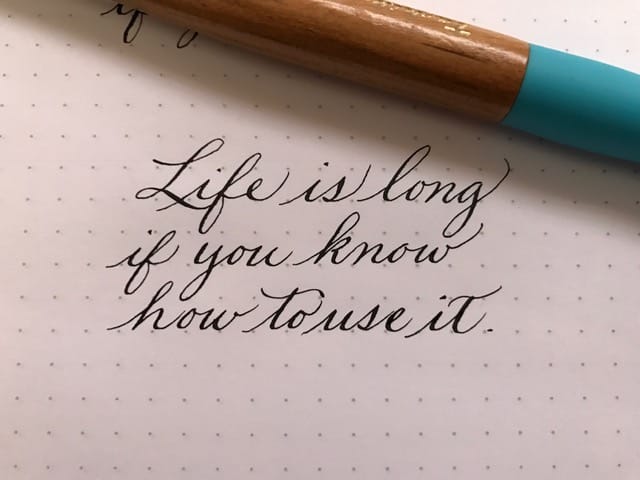 Life is long
if you know
how to use it.